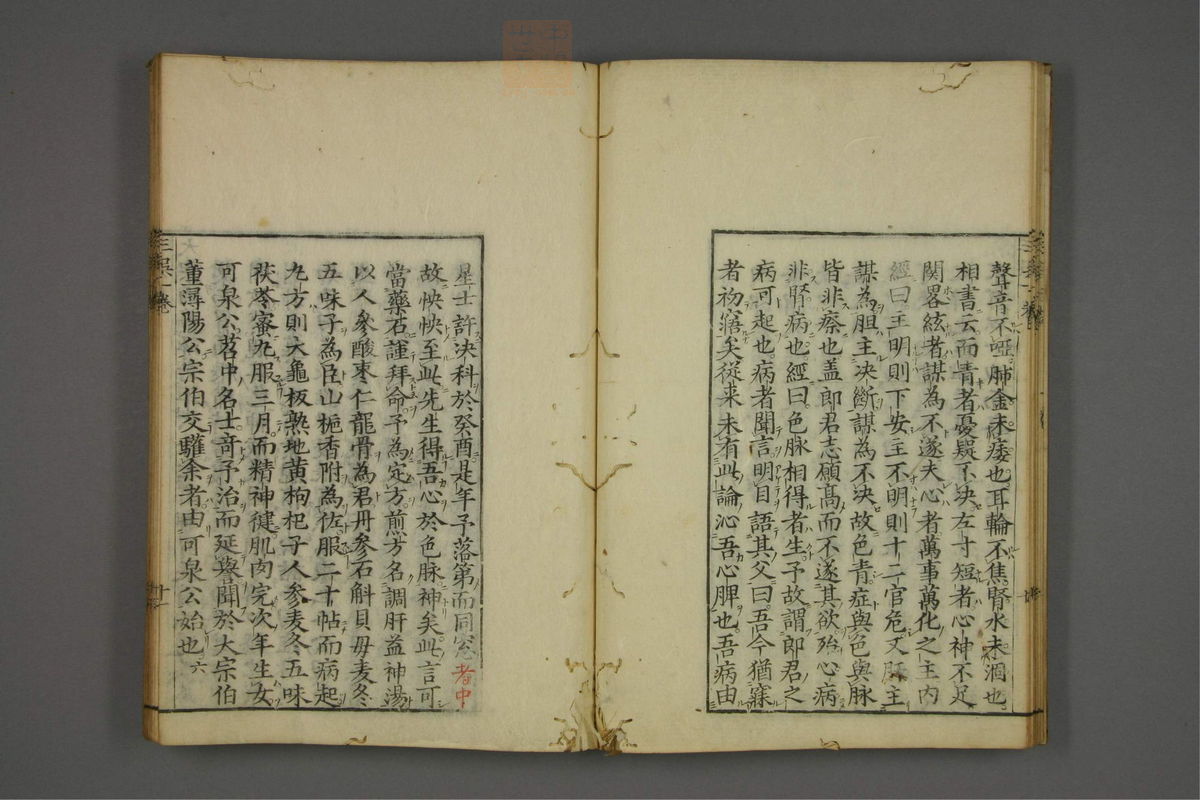 聲音不啞肺金未痿也耳輪不焦腎水未涸也
相書云而青者憂疑不決左寸短者心神不足
関畧絃者謀為不遂夫心者萬事萬化之主内
經曰主明則下安主不明則十二官危又肝主
謀為胆主决斷謀為不决故色青症與色與脉
皆非瘵也盖郎君志願髙而不遂其欲殆心病
非腎病也經曰色脉相得者生予故謂郎君之
病可起也病者聞言明目語其父曰吾今猶寐
者初寤矣從来未有此論沁吾心脾也吾病由
星士許决科於癸酉是年予落第而同窓者中
故怏怏至此先生得吾心於色脉神矣此言可
當藥石謹拜命予為定方煎方名調肝益神湯
以人參酸棗仁龍骨為君丹參石斛貝母麦冬
五味子為臣山梔香附為佐服二十帖而病起
九方則大龜板熟地黄枸杞子人參麦冬五味
茯苓蜜九服三月而精神健肌肉完次年生女
可泉公苕中名士竒予治而延與聞於大宗伯
董潯陽公宗伯交驩余者由可泉公始也六
三吴一卷